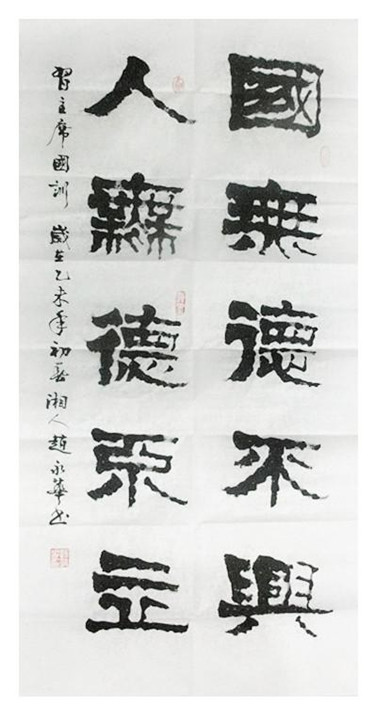 國無德不興
人無德不立
習主席國訓 歲在乙未年初春湘人趙永華书